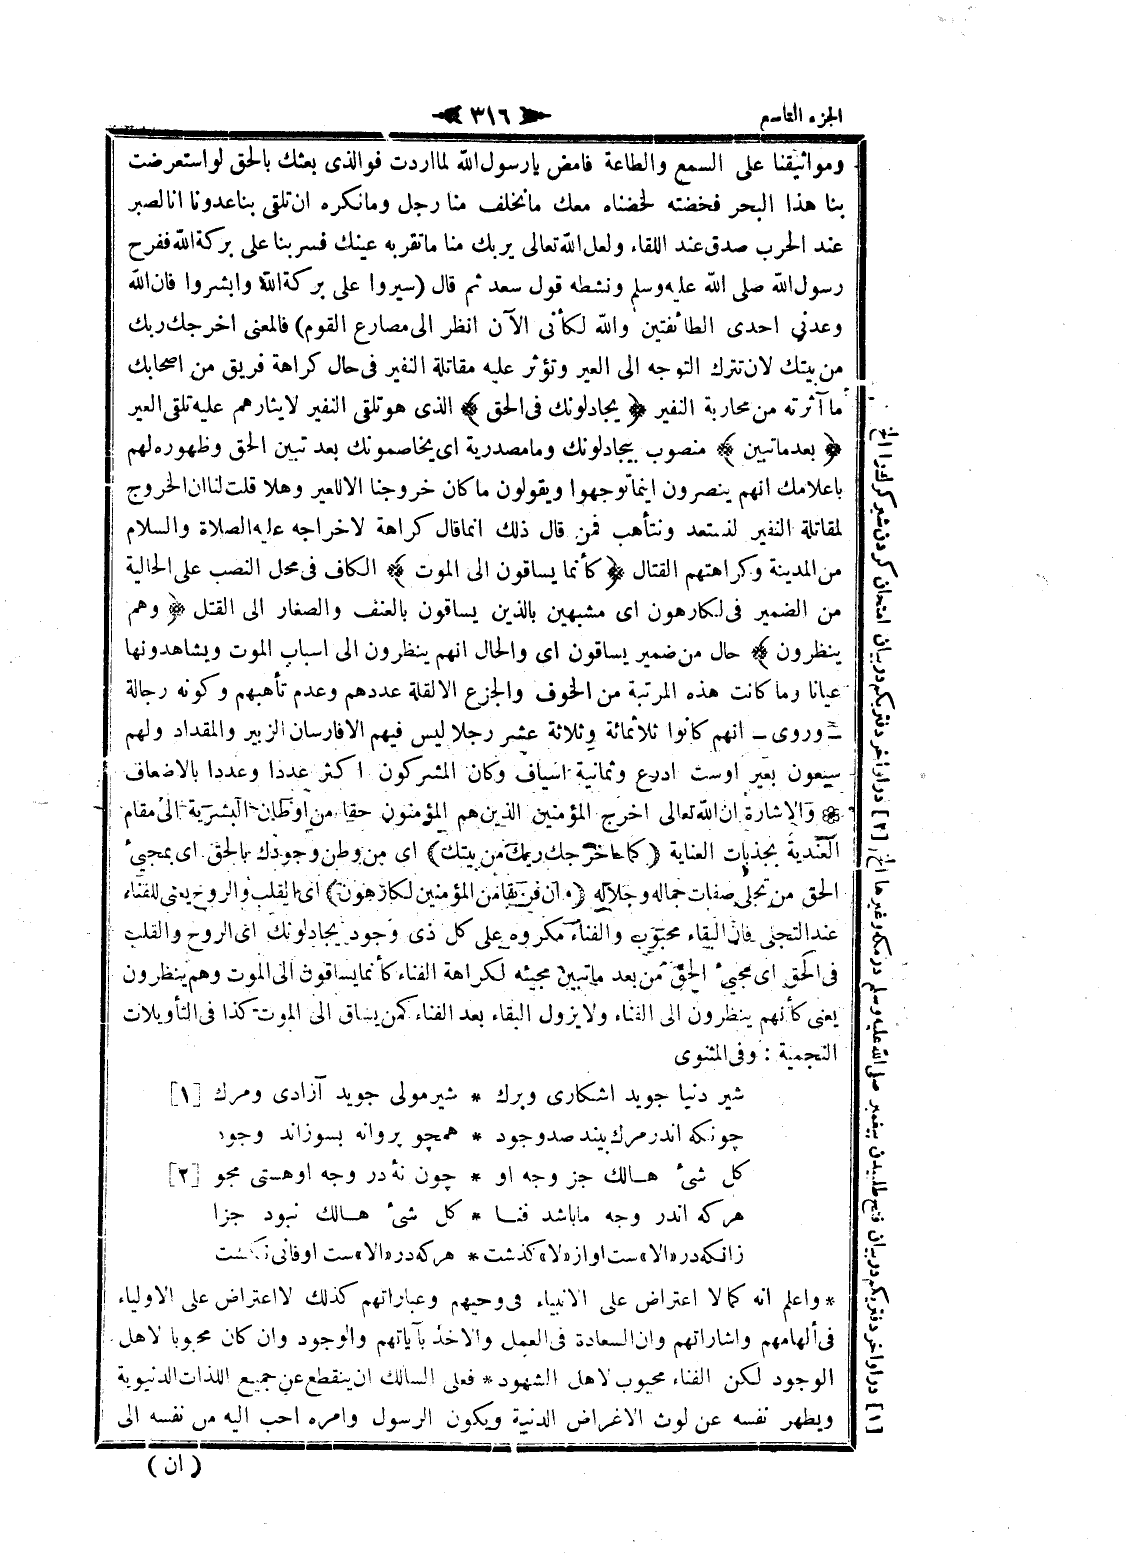 الجزء التاسع
٣١٦
ومواثيقنا على السمع والطاعة فامض يارسول الله لما اردت فوالذى بعثك بالحق لو استعرضت
بنا هذا البحر فخضته لخضناه معك ما تخلف منا رجل وما نكره ان تلقى بنا عدونا انا لصبر
عند الحرب صدق عند اللقاء ولعل الله تعالى يريك منا ما تقر به عينك فسر بنا على بركة الله ففرح
رسول الله صلى الله عليه وسلم ونشطه قول سعد ثم قال (سيروا على بركة الله وابشروا فان الله
وعدنى احدى الطائفتين والله لكأنى الآن انظر الى مصارع القوم) فالمعنى اخرجك ربك
من بيتك لان تترك التوجه الى العير وتؤثر عليه مقاتلة النفير فى حال كراهة فريق من اصحابك
ما آثرته من محاربة النفير ﴿ يجادلونك فى الحق ﴾ الذى هو تلقى النفير لايثارهم عليه تلقى العير
﴿ بعد ما تبين ﴾ منصوب بيجادلونك وما مصدرية اى يخاصمونك بعد تبين الحق وظهوره لهم
باعلامك انهم ينصرون اينما توجهوا ويقولون ما كان خروجنا الا للعير وهلا قلت لنا ان الخروج
لمقاتلة النفير لنستعد ونتأهب فمن قال ذلك انما قال كراهة لاخراجه عليه الصلاة والسلام
من المدينة وكراهتهم القتال ﴿ كأنما يساقون الى الموت ﴾ الكاف فى محل النصب على الحالية
من الضمير فى لكارهون اى مشبهين بالذين يساقون بالعنف والصغار الى القتل ﴿ وهم
ينظرون ﴾ حال من ضمير يساقون اى والحال انهم ينظرون الى اسباب الموت ويشاهدونها
عيانا وما كانت هذه المرتبة من الخوف والجزع الا لقلة عددهم وعدم تأهبهم وكونه رجالة
ـ وروى ـ انهم كانوا ثلاثمائة وثلاثة عشر رجلا ليس فيهم الا فارسان الزبير والمقداد ولهم
سبعون بعير اوست ادرع وثمانية اسياف وكان المشركون اكثر عددا وعددا بالاضعاف
❁ والاشارة ان الله تعالى اخرج المؤمنين الذين هم المؤمنون حقا من اوطان البشرية الى مقام
العندية بجذبات العناية (كما اخرجك ربك من بيتك) اى من وطن وجودك بالحق اى بمجيئ
الحق من تجلى صفات جماله وجلاله (وان فريقا من المؤمنين لكارهون) اى القلب والروح يعنى للفناء
عند التجلى فان البقاء محبوب والفناء مكروه على كل ذى وجود يجادلونك اى الروح والقلب
فى الحق اى مجيئ الحق من بعد ما تبين مجيئه لكراهة الفناء كأنما يساقون الى الموت وهم ينظرون
يعنى كأنهم ينظرون الى الفناء ولا يزول البقاء بعد الفناء كمن يساق الى الموت كذا فى التأويلات
النجمية : وفى المثنوى
شير دنيا جويد اشكارى وبرك * شير مولى جويد آزادى ومرك [١]
چونكه اندر مرك بيند صد وجود * همچو پروانه بسوزاند وجود
كل شئ هالك جز وجه او * چون نۀ در وجه او هستى مجو [٢]
هركه اندر وجه ما باشد فنا * كل شئ هالك نبود جزا
زانكه در «الا»ست او از «لا» كذشت * هركه در «الا»ست او فانى نكشت
* واعلم انه كما لا اعتراض على الانبياء فى وحيهم وعباراتهم كذلك لا اعتراض على الاولياء
فى ألهامهم واشاراتهم وان السعادة فى العمل والاخذ بآياتهم والوجود وان كان محبوبا لاهل
الوجود لكن الفناء محبوب لاهل الشهود * فعلى السالك ان ينقطع عن جميع اللذات الدنيوية
ويطهر نفسه عن لوث الاغراض الدنية ويكون الرسول وامره احب اليه من نفسه الى
(ان)
[١] در اواخر دفتر يكم در بيان فتح طلبيدن پيغمبر صلى الله عليه وسلم در مكه وغيرها الخ [٢] در اواخر دفتر يكم در بيان امتحان كردن شير كرك را الخ